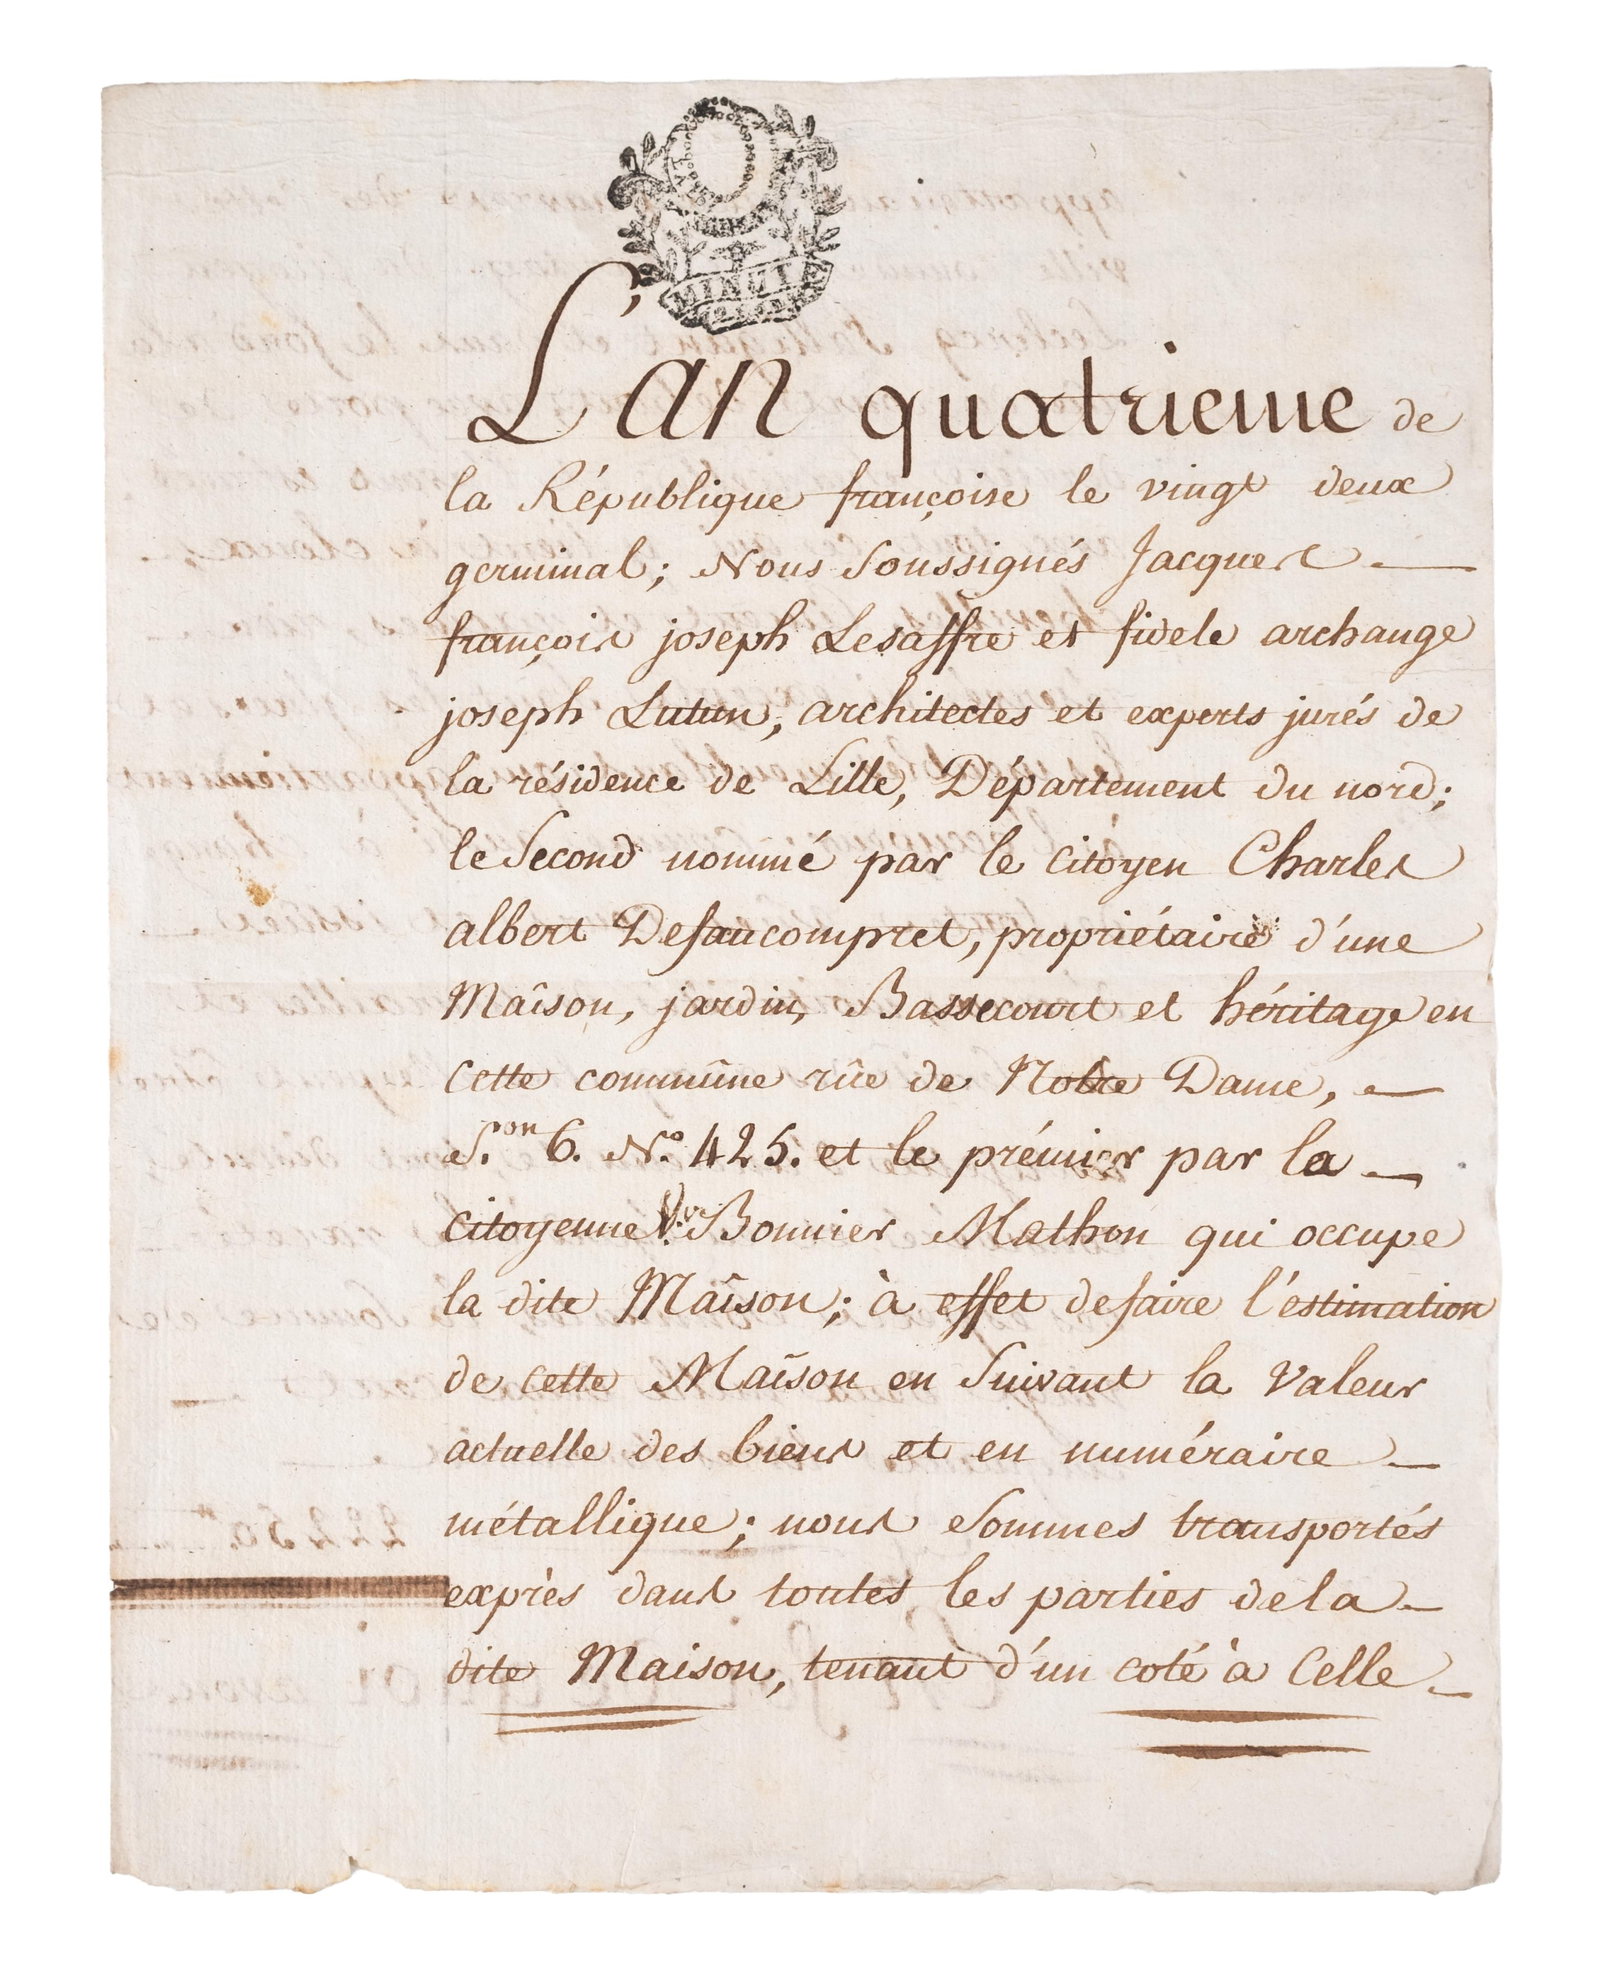 L'an quatrieme de
la République françoise le vingt deux
germinal; Nous Soussignés Jacques
françois joseph Lesaffre et fidele archange
joseph Lutun, architectes et experts jurés de
la résidence de Lille, Département du nord;
le Second nommé par le citoyen Charles
albert Defaucompret, propriétaire d'une
Maîson, jardin, Bassecourt et héritage en
cette commûne rûe de Notre Dame,
S.on 6. N.o 425. et le prémier par la
citoyenne V.ve Bonnier Mathon qui occupe
la dite Maîson; à effet de faire l'estimation
de cette Maîson en Suivant la Valeur
actuelle des biens et en numéraire
métallique; nous Sommes transportés
exprès dans toutes les parties de la
dite Maison, tenant d'un coté à Celle